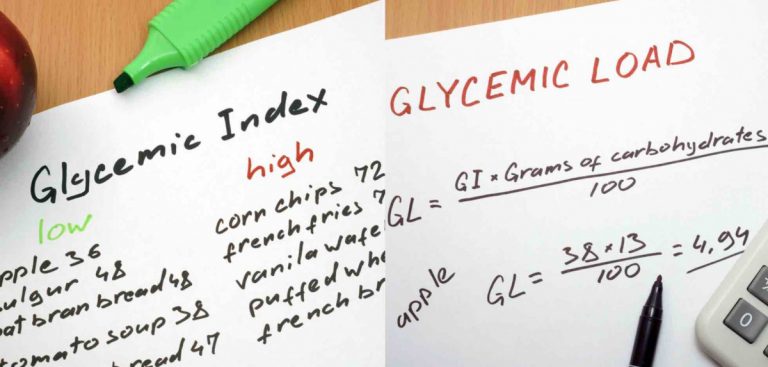 Glycemic Index
low
pple 36
ulgur 48
oat bran bread 48
tomato soup 38
bread 47
high
corn chips 72
french fries 7
vanila wafe
puffed whe
french br
GLYCEMIC LOAD
GL = GI × Grams of carbohydrates
100
apple GL = 38 × 13 = 4,94
100
0